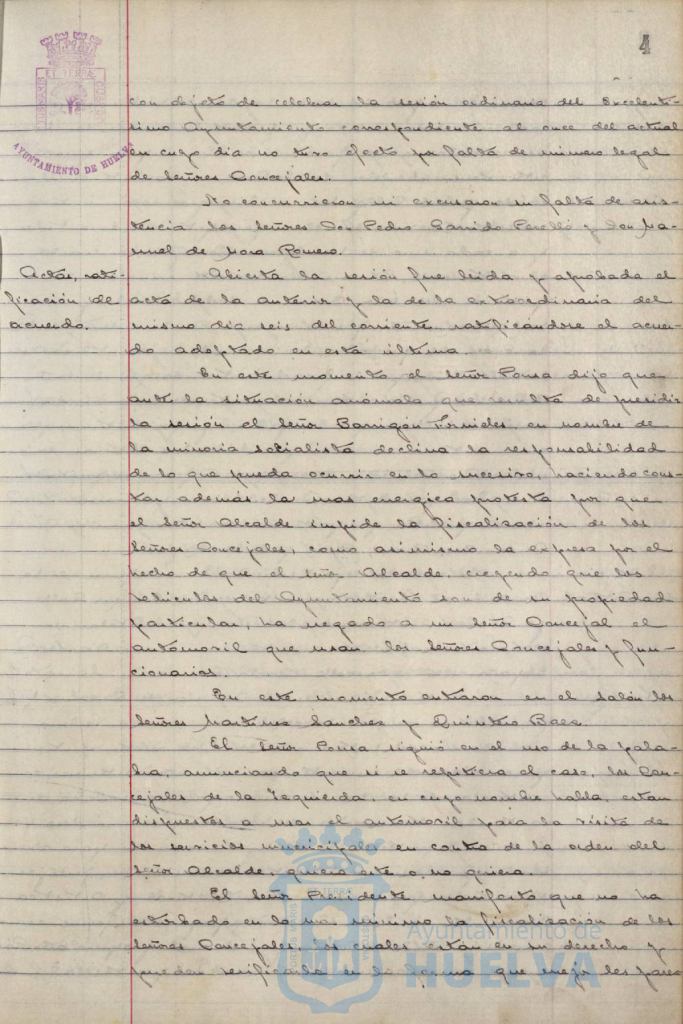 4
PORTUS MARIS
ET TERRAE
CUSTODIA
AYUNTAMIENTO DE HUELVA
con objeto de celebrar la sesión ordinaria del Excelentí-
simo Ayuntamiento correspondiente al once del actual
en cuyo dia no tuvo efecto por falta de número legal
de Señores Concejales.
No concurrieron ni excusaron su falta de asis-
tencia los Señores Don Pedro Garrido Perelló y Don Ma-
nuel de Mora Romero.
Actas, rati-
ficación de
acuerdo.
Abierta la sesión fue leida y aprobada el
acta de la anterior y la de la extraordinaria del
mismo dia seis del corriente, ratificándose el acuer-
do adoptado en esta última.
En este momento el Señor Ponsa dijo que
ante la situación anómala que resulta de presidir
la sesión el Señor Barrigón Fornieles, en nombre de
la minoria socialista declina la responsabilidad
de lo que pueda ocurrir en lo sucesivo, haciendo cons-
tar además la mas energica protesta por que
el Señor Alcalde impide la fiscalización de los
Señores Concejales, como asimismo la expresa por el
hecho de que el señor Alcalde, creyendo que los
vehiculos del Ayuntamiento son de su propiedad
particular, ha negado a un Señor Concejal el
automovil que usan los Señores Concejales y fun-
cionarios.
En este momento entraron en el salón los
Señores Martinez Sanchez y Quintero Baez.
El Señor Ponsa siguió en el uso de la pala-
bra, anunciando que si se repitiera el caso, los Con-
cejales de la Izquierda, en cuyo nombre habla, estan
dispuestos a usar el automovil para la visita de
los servicios municipales en contra de la orden del
Señor Alcalde, quiera este o no quiera.
El Señor Presidente manifestó que no ha
estorbado en lo mas minimo la fiscalización de los
Señores Concejales, los cuales están en su derecho y
pueden verificarla en la forma que mejor les parez
Ayuntamiento de
HUELVA